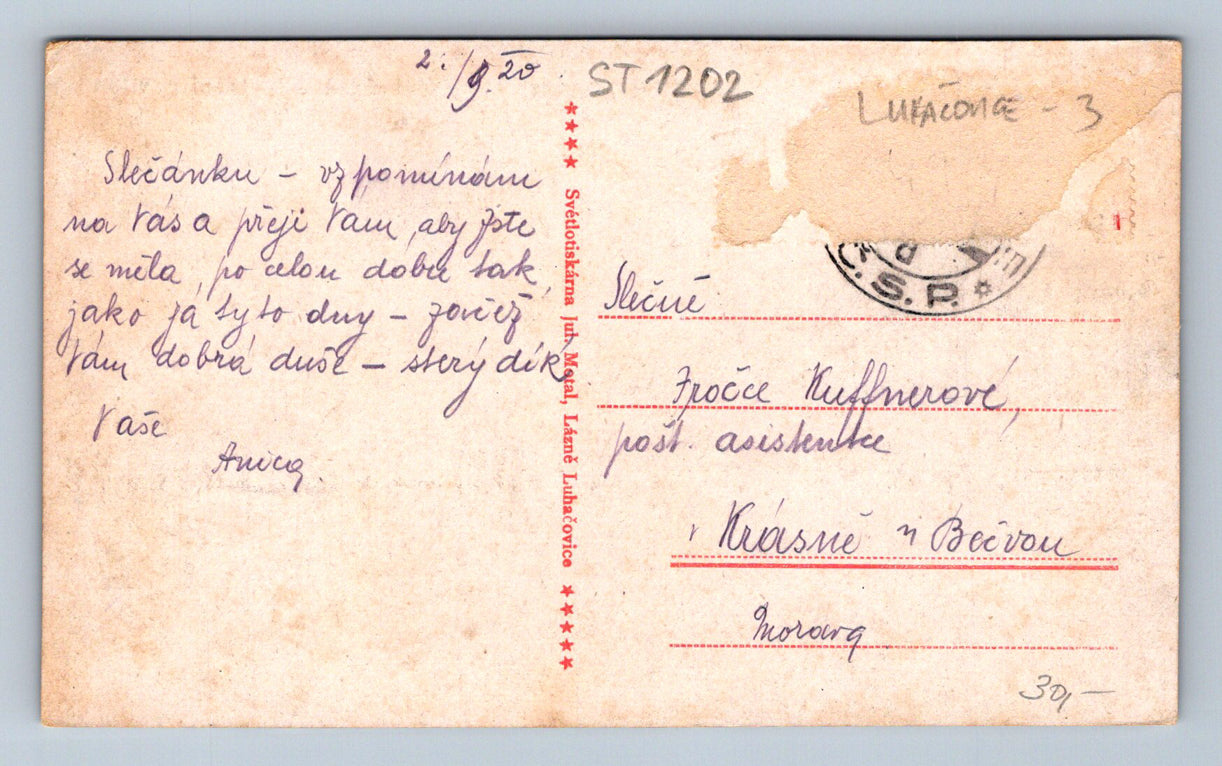 2./9. 20
Slečánku – vzpomínám
na Vás a přeji Vám, aby jste
se měla, po celou dobu tak,
jako já tyto dny –
Vám dobrá duše – dík
Vaše
Anica
★★★★ Světlotiskárna Juh. Motal, Lázně Luhačovice ★★★★★
ST 1202
LUHAČOVICE - 3
Č.S.P. *
Slečně
Kuffnerové,
pošt. asistentce
v Krásně n Bečvou
Morava
30,–